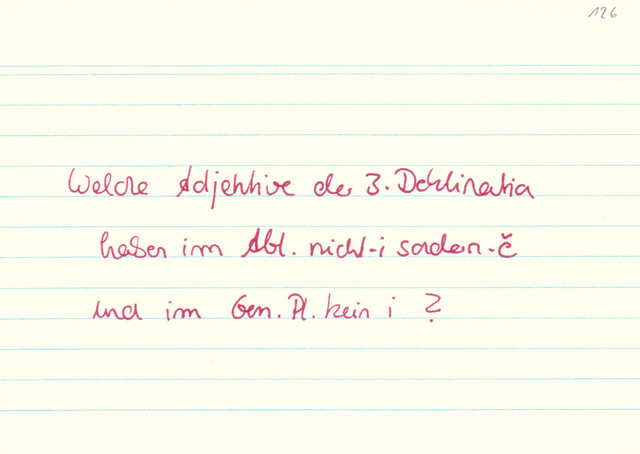 126
Welche Adjektive der 3. Deklination
haben im Abl. nicht -i sondern -ĕ
und im Gen. Pl. kein i ?